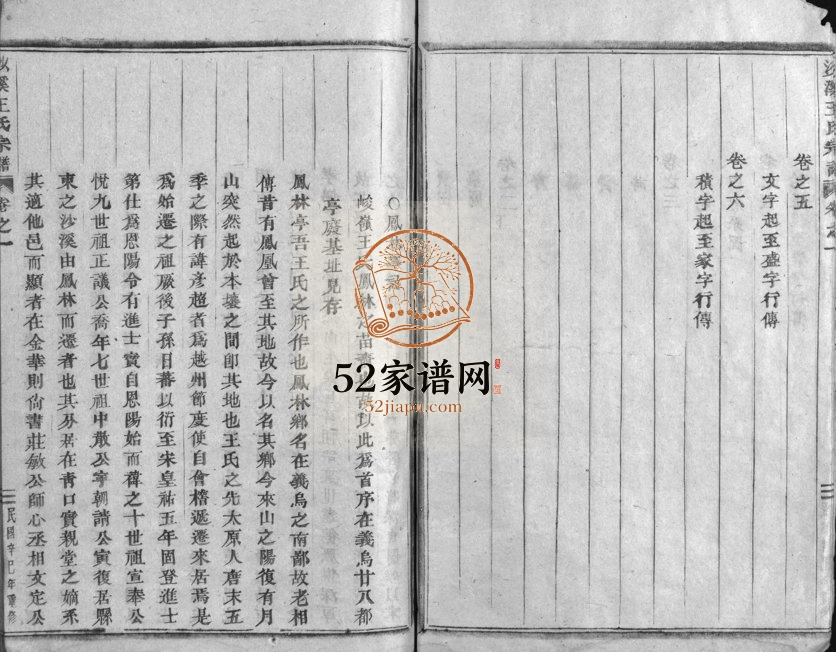 沙溪王氏宗譜
卷之五
文字起至盛字行傳
卷之六
積字起至家字行傳
峻嶺王氏鳳林
故以此爲首序在義烏廿八都
亭廢基址見存
鳳林亭吾王氏之所作也鳳林鄉名在義烏之南鄙故老相
傳昔有鳳凰曾至其地故今以名其鄉今來山之陽復有月
山突然起於本壤之間卽其地也王氏之先太原人唐末五
季之際有諱彥超者爲越州節度使自會稽遜遷來居焉是
爲始遷之祖厥後子孫日蕃以衍至宋皇祐五年固登進士
第仕爲恩陽令有進士實自恩陽始而葎之十世祖宣奉公
悅九世祖正議公喬年七世祖中散公寧朝請公寅復居縣
東之沙溪由鳳林而遷者也其分居在青口實親堂之嫡系
其適他邑而顯者在金華則尙書莊敏公師心丞相文定公
沙溪王氏宗譜
卷之一
民國辛巳年重修
52家谱网
52jiapu.com